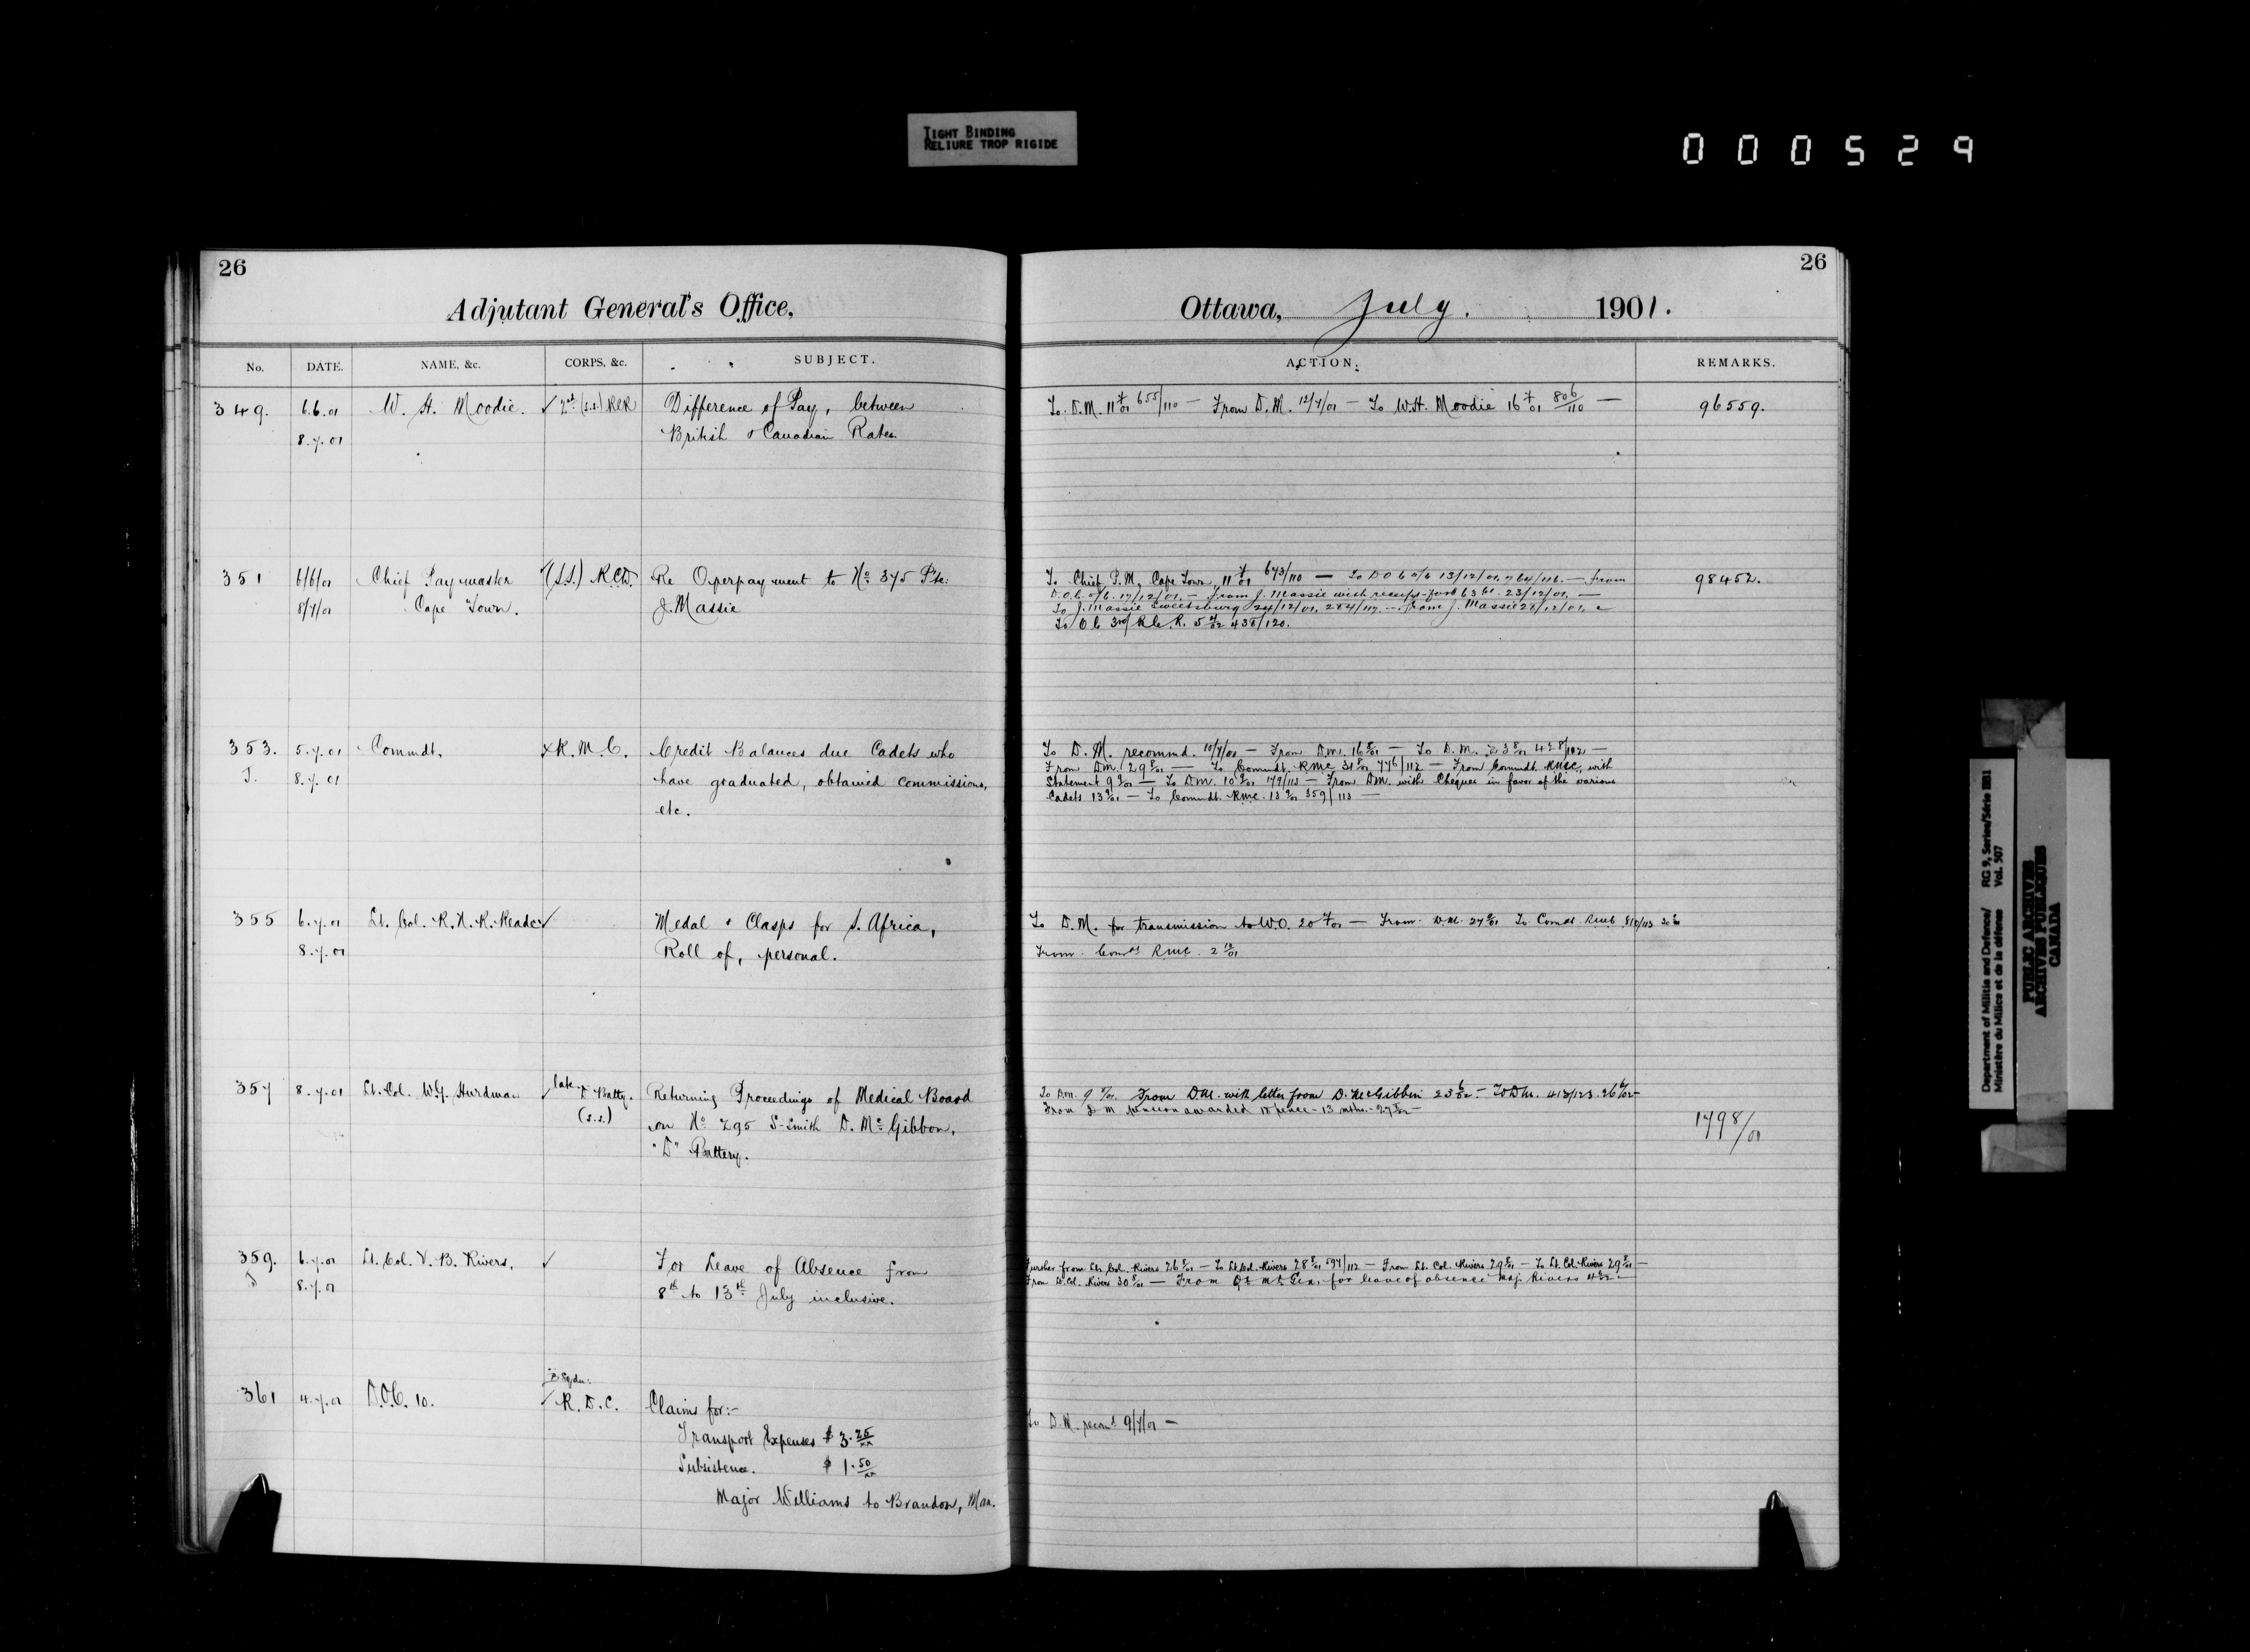 TIGHT BINDING
RELIURE TROP RIGIDE
000529
26
Adjutant General's Office,
No. DATE. NAME, &c. CORPS, &c. SUBJECT.
349. 6.6.01 W. H. Moodie. ✓ 2nd (S.S.) RCR Difference of Pay, between
8.7.01 British & Canadian Rates.
351 6/6/01 Chief Paymaster (S.S.) R.C.D. Re Overpayment to No. 375 Pte.
8/7/01 Cape Town. J. Massie
353. 5.7.01 Commdt. R.M.C. Credit Balances due Cadets who
J. 8.7.01 have graduated, obtained commissions,
etc.
355 6.7.01 Lt. Col. R. N. R. Reade ✓ Medal & Clasps for S. Africa,
8.7.01 Roll of, personal.
357 8.7.01 Lt. Col. W.G. Hurdman ✓ late D Batty. Returning Proceedings of Medical Board
(S.S.) on No. 295 S-Smith D. McGibbon,
"D" Battery.
359. 6.7.01 Lt. Col. V. B. Rivers, ✓ For Leave of Absence from
8.7.01 8th to 13th July inclusive.
"B Sqdn:
361 4.7.01 D.O.C. 10. ✓ R. D. C. Claims for:-
Transport Expenses $3.25/xx
Subsistence. $1.50/xx
Major Williams to Brandon, Man.
26
Ottawa, July. 1901.
ACTION. REMARKS.
To D.M. 11 7/01 655/110 — From D.M. 12/7/01 — To W.H. Moodie 16 7/01 806/110 — 96559.
To Chief P.M. Cape Town, 11 7/01 673/110 — To D O C 5/6 13/12/01, 764/116. — From 98452.
D.O.C. 5/6. 17/12/01, — From J. Massie with receipt for 23/12/01, —
To J. Massie Sweetsburg 24/12/01, 284/117. — From J. Massie 28/12/01, —
To O.C. 3rd R.C.R. 438/120.
To D. M. recommd. 10/7/01 — From D.M. 16 8/01 — To D.M. 23 8/01 428/112 —
From D.M. 29 8/01 — To Commdt. RMC 31 8/01 776/112 — From Commdt. RMC, with
Statement 9 9/01 — To D.M. 10 9/01 179/113 — From D.M. with Cheques in favor of the various
Cadets 13 9/01 — To Commdt. RMC. 13 9/01 359/113 —
To D.M. for transmission to W.O. 20 7/01 — From D.M. 27 9/01 To Comdt. RMC
From Comdt RMC. 2 10/01
To D.M. 9 7/01. From D.M. with letter from D. McGibbon 23 6/02 — To D.M. 413/123. 26 6/02 —
From D M pension awarded 18 pence - 13 mths. 1798/01
Further from Lt. Col. Rivers 26 8/01 — To Lt. Col. Rivers 28 8/01 597/112 — From Lt. Col. Rivers 29 8/01 — To Lt. Col. Rivers 29 8/01 —
From Lt. Col. Rivers 30 8/01 — From Qr. Mr. Gen. for leave of absence Maj. Rivers
To D.M. recomd 9/7/01 —
Department of Militia and Defence/ RG 9, Series/Série IIB1
Ministère du Milice et de la défense Vol. 507
PUBLIC ARCHIVES
ARCHIVES PUBLIQUES
CANADA